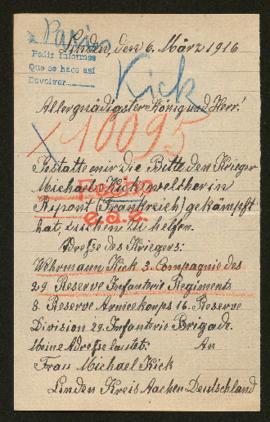 Paris
Linden, den 6. März 1916
Pedir Informes
Que se hace así
Devolver
Kick
Allergnädigster König und Herr!
10095
Gestatte mir die Bitte den Krieger
Michael Kick welcher in
Ripont (Frankreich) gekämpft
hat, suchen zu helfen.
e.a.e.
Adresse des Kriegers:
Wehrmann Kick 3. Compagnie des
29 Reserve Infanterie Regiments
8. Reserve Armeekorps 16. Reserve
Division 29 Infanterie Brigade.
Meine Adresse lautet: An
Frau Michael Kick
Linden Kreis Aachen Deutschland